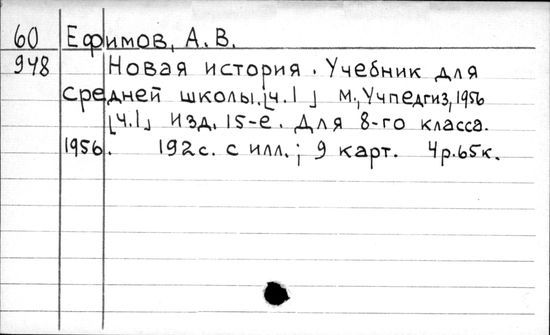 60 Ефимов, А. В.
948 Новая история. Учебник для
средней школы. [ч.1] М., Учпедгиз, 1956
[ч.1] изд. 15-е. Для 8-го класса.
1956. 192 с. с илл.; 9 карт. 4р.65к.